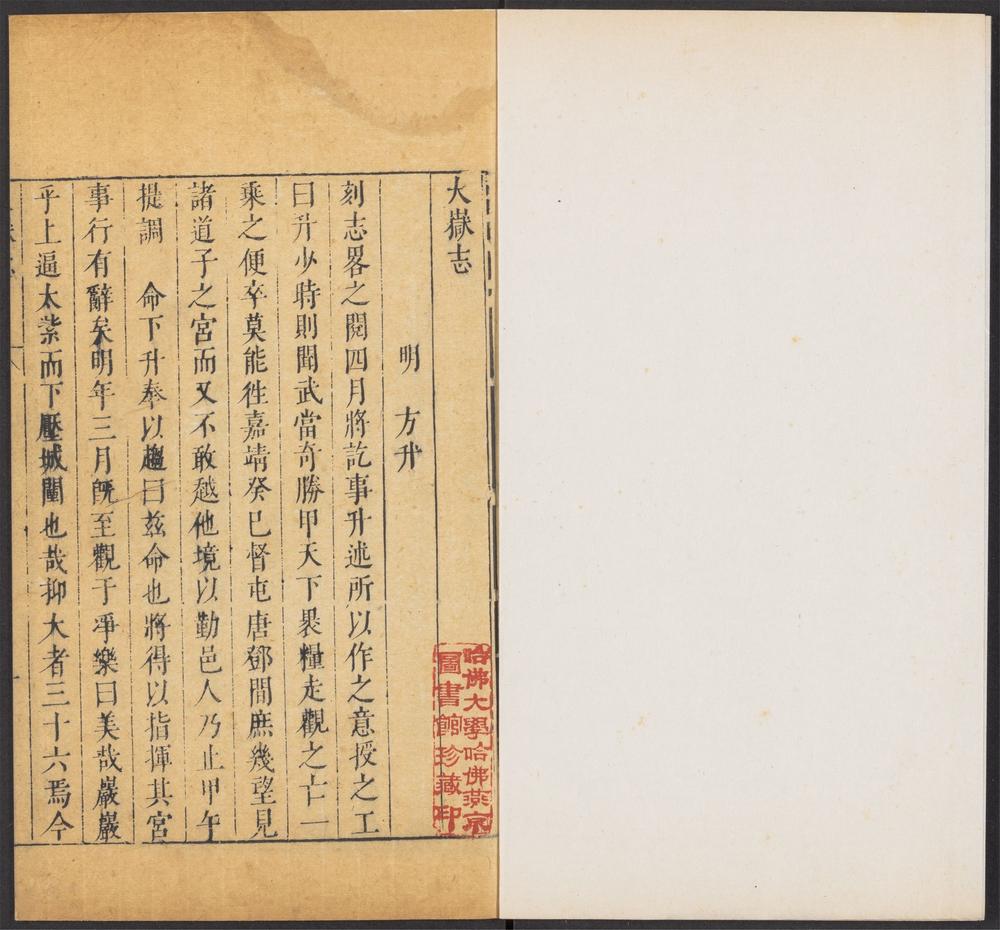 大嶽志
明 方升
刻志畧之閱四月將訖事升述所以作之意授之工
曰升少時則聞武當奇勝甲天下褁糧走觀之亡一
乘之便卒莫能徃嘉靖癸巳督屯唐鄧間庶幾望見
諸道子之宮而又不敢越他境以勤邑人乃止甲午
提調 命下升奉以趨曰兹命也將得以指揮其宮
事行有辭矣明年三月旣至觀于凈樂曰美哉巖巖
乎上逼太紫而下壓城闉也哉抑大者三十六焉今
哈佛大學哈佛燕京
圖書館珍藏印